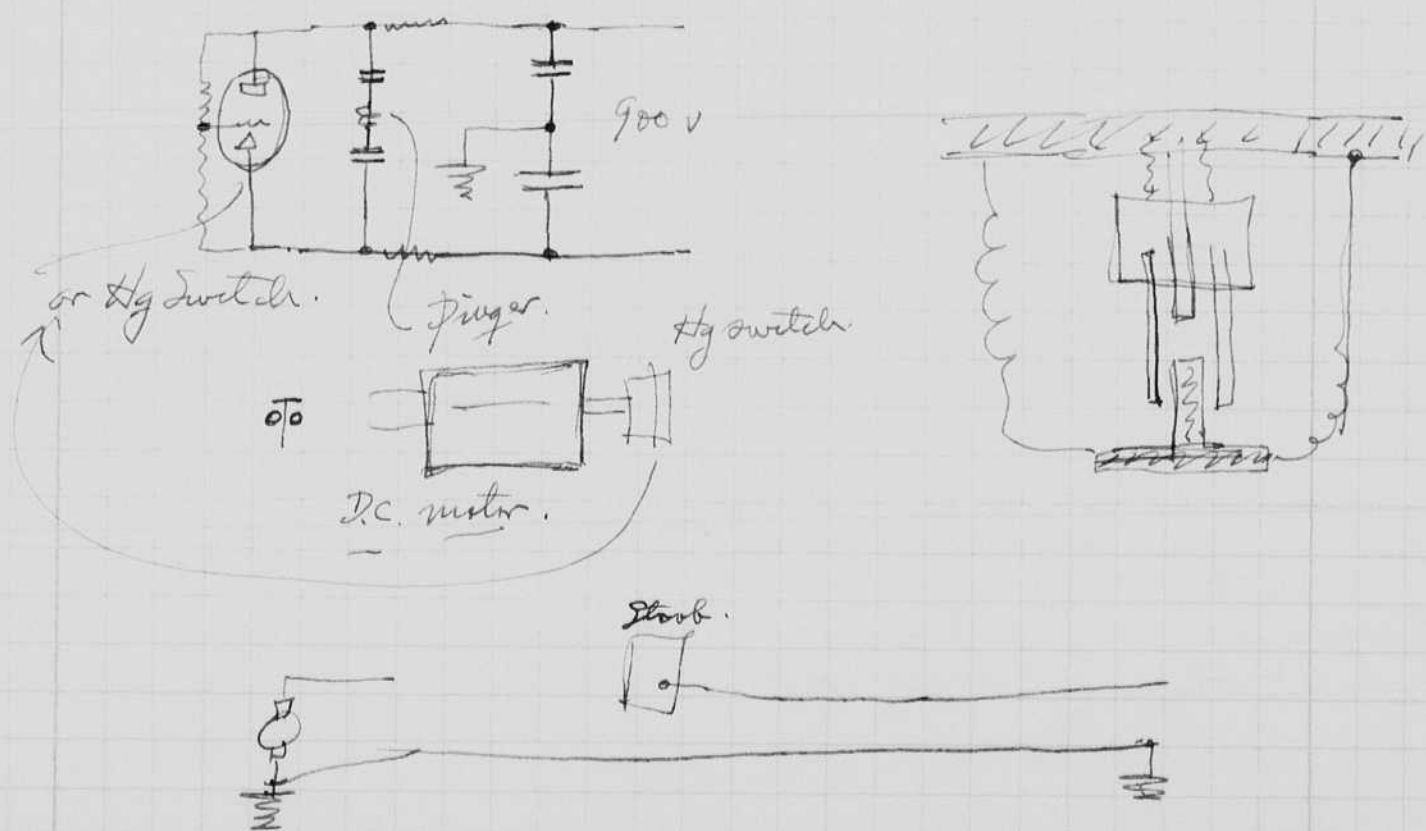 900 v
or Hg Switch.
Pinger.
Hg switch.
D.C. motor.
Strob.